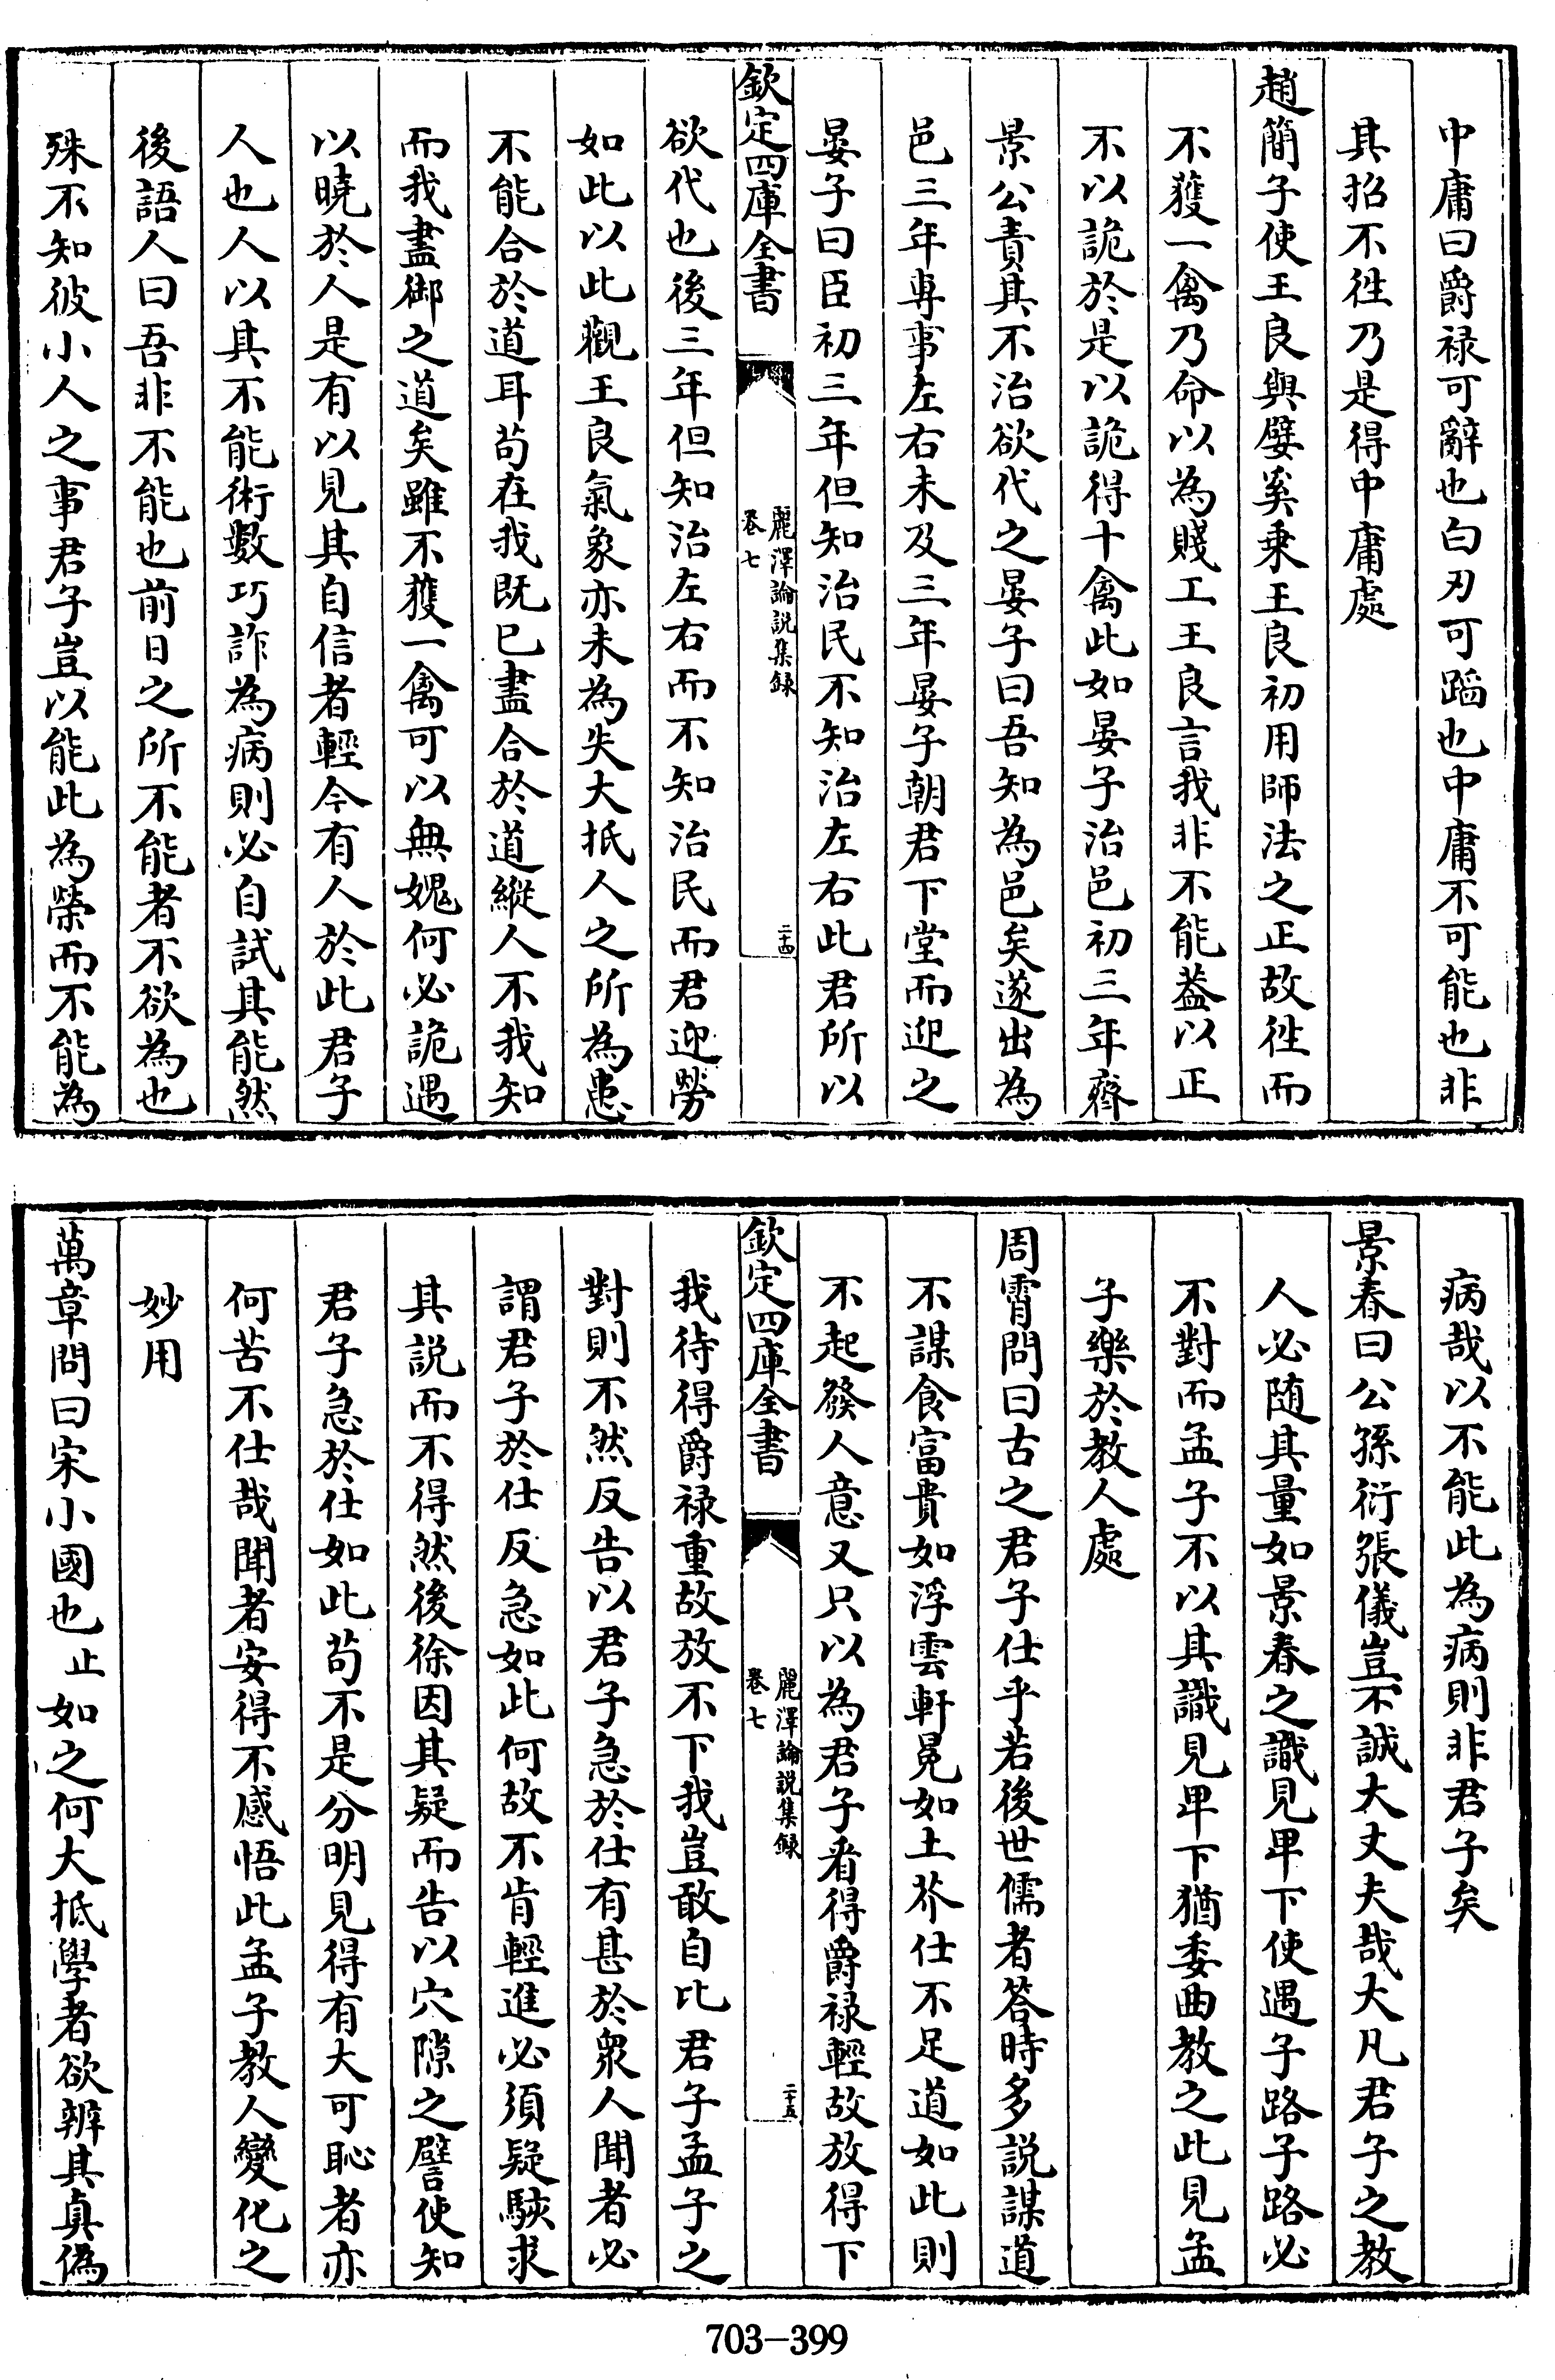 中庸曰爵禄可辭也白刃可蹈也中庸不可能也非
其招不徃乃是得中庸處
趙簡子使王良與嬖奚乗王良初用師法之正故徃而
不獲一禽乃命以為賤工王良言我非不能葢以正
不以詭於是以詭得十禽此如晏子治邑初三年齊
景公責其不治欲代之晏子曰吾知為邑矣遂出為
邑三年専事左右未及三年晏子朝君下堂而迎之
晏子曰臣初三年但知治民不知治左右此君所以
欽定四庫全書
麗澤論説集録
卷七
二十四
欲代也後三年但知治左右而不知治民而君迎勞
如此以此觀王良氣象亦未為失大抵人之所為患
不能合於道耳苟在我既已盡合於道縱人不我知
而我盡御之道矣雖不獲一禽可以無媿何必詭遇
以曉於人是有以見其自信者輕今有人於此君子
人也人以其不能術數巧詐為病則必自試其能然
後語人曰吾非不能也前日之所不能者不欲為也
殊不知彼小人之事君子豈以能此為榮而不能為
病哉以不能此為病則非君子矣
景春曰公孫衍張儀豈不誠大丈夫哉大凡君子之教
人必随其量如景春之識見卑下使遇子路子路必
不對而孟子不以其識見卑下猶委曲教之此見孟
子樂於教人處
周霄問曰古之君子仕乎若後世儒者答時多説謀道
不謀食富貴如浮雲軒冕如土芥仕不足道如此則
不起發人意又只以為君子看得爵禄輕故放得下
欽定四庫全書
麗澤論説集録
卷七
二十五
我待得爵禄重故放不下我豈敢自比君子孟子之
對則不然反告以君子急於仕有甚於衆人聞者必
謂君子於仕反急如此何故不肯輕進必須疑駭求
其説而不得然後徐因其疑而告以穴隙之譬使知
君子急於仕如此苟不是分明見得有大可恥者亦
何苦不仕哉聞者安得不感悟此孟子教人變化之
妙用
萬章問曰宋小國也止如之何大抵學者欲辨其真偽
703-399